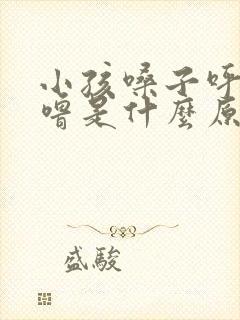 小孩嗓子呼
噜是什麼原
盛駿